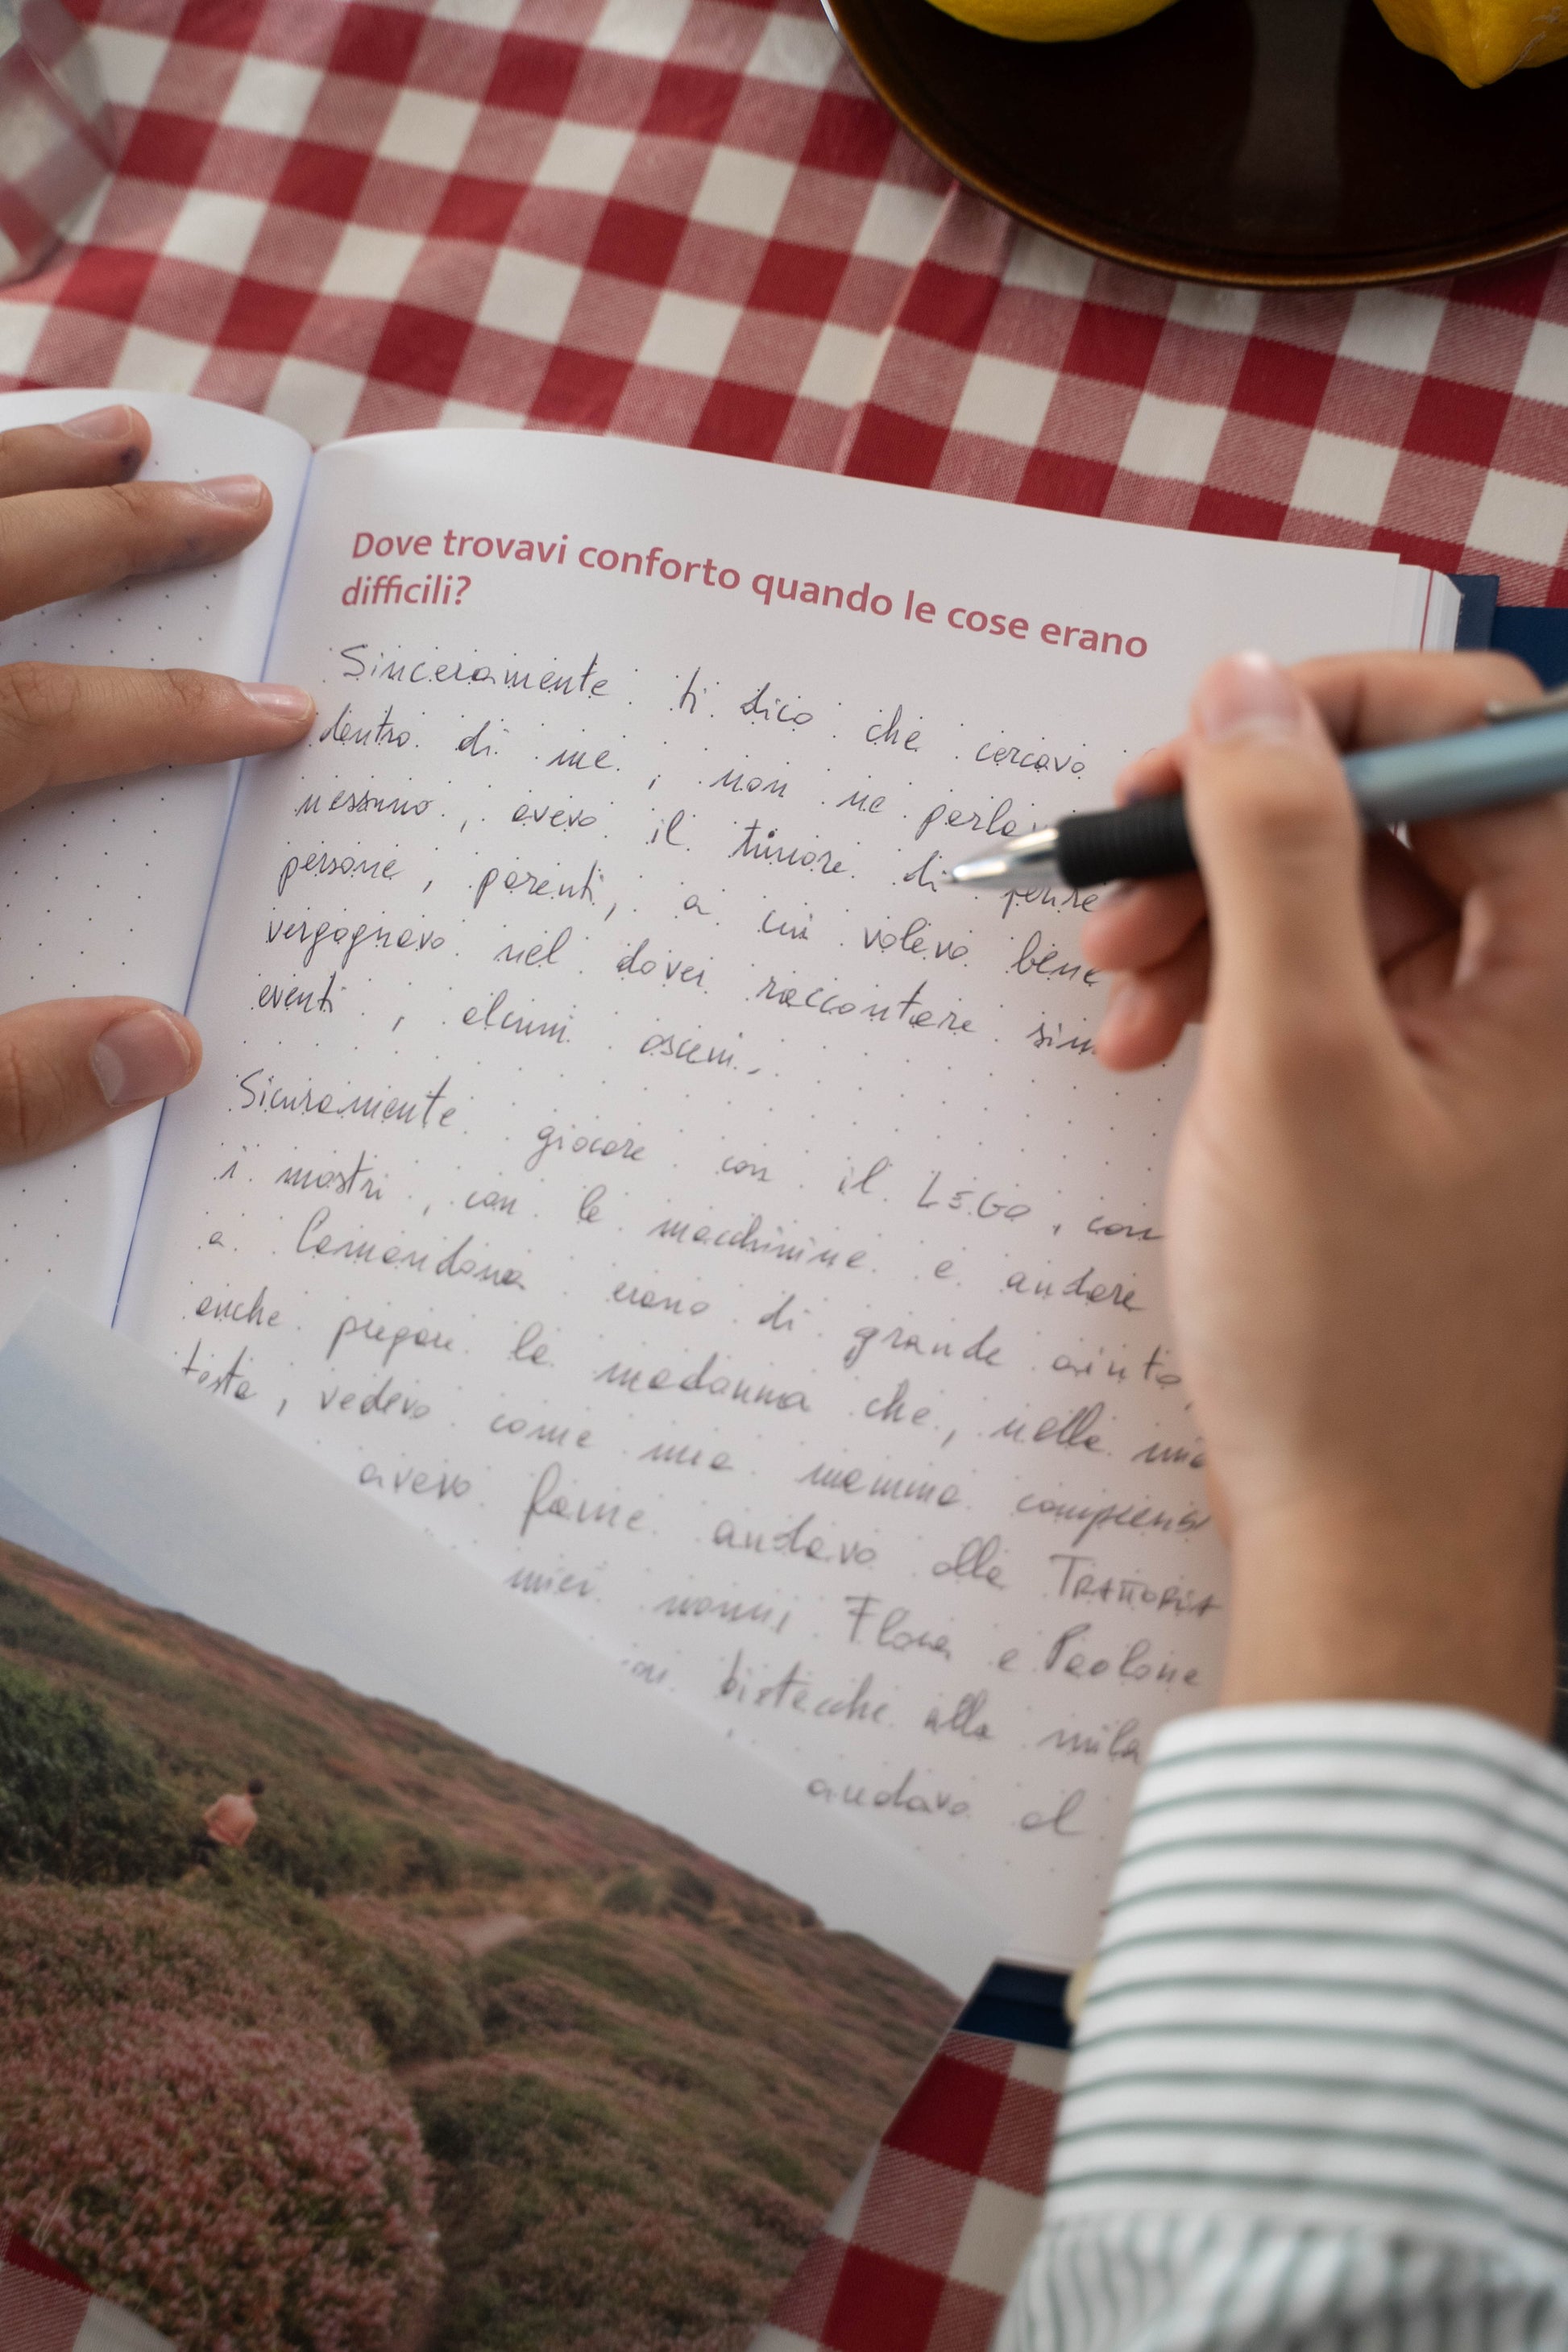 Dove trovavi conforto quando le cose erano
difficili?
Sinceramente ti dico che cercavo
dentro di me, non ne parla
nessuno, avevo il timore di ferire
persone, parenti, a cui volevo bene
vergognavo nel dover raccontare sim
eventi, alcuni osceni,
Sicuramente giocare con il LEGO, con
i mostri, con le macchinine e andare
a Camandona erano di grande aiuto,
anche pregare la madonna che, nella mia
testa, vedevo come mia mamma comprensi
avevo fame andavo alla TRATTORIA
miei nonni Flora e Paolone
bistecche alla mila
andavo al